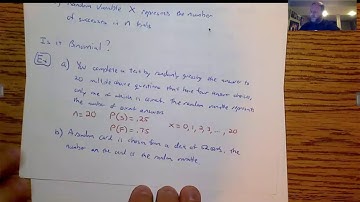 random variable X represents the number
of successes in n trials
Is it Binomial?
Ex a) You complete a test by randomly guessing the answer to
20 multiple choice questions that have four answer choices,
only one of which is correct. The random variable represents
the number of correct answers
n=20 P(S)=.25 x=0,1,2,3,...,20
P(F)=.75
b) A random card is chosen from a deck of 52 cards, the
number on the card is the random variable